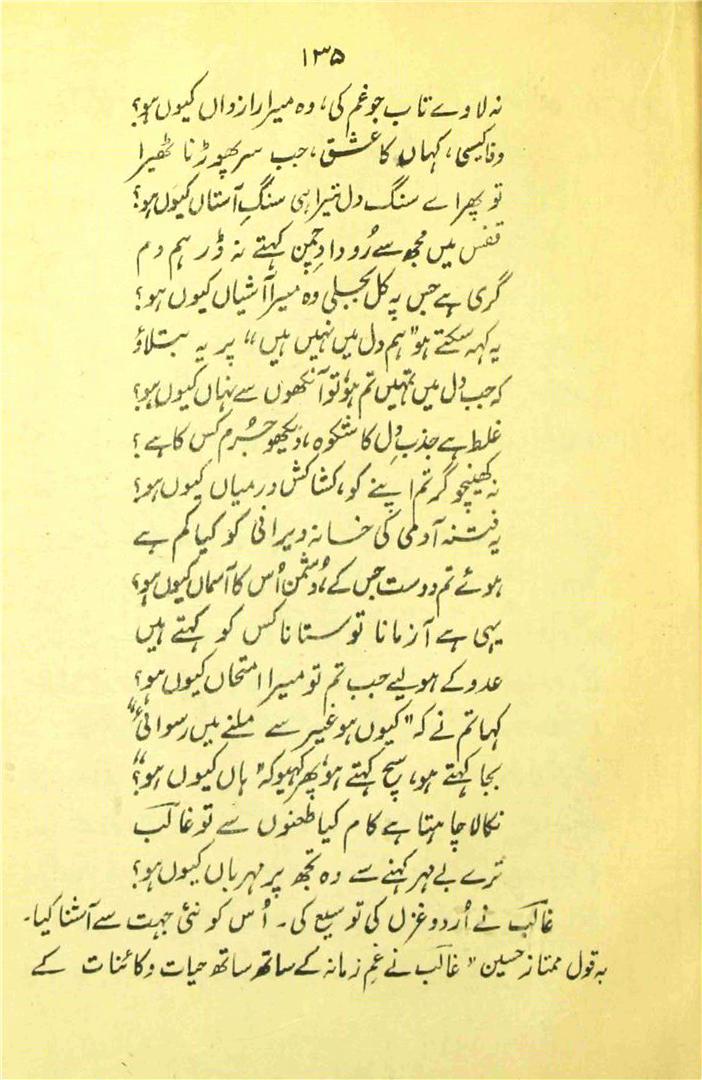 ۱۳۵
نہ لاوے تاب جو غم کی، وہ میرا رازداں کیوں ہو؟
وفا کیسی، کہاں کا عشق، جب سر پھوڑنا ٹھیرا
تو پھر اے سنگ دل تیرا ہی سنگِ آستاں کیوں ہو؟
قفس میں مجھ سے رُودادِ چمن کہتے نہ ڈر ہم دم
گری ہے جس پہ کل بجلی وہ میرا آشیاں کیوں ہو؟
یہ کہہ سکتے ہو "ہم دل میں نہیں ہیں" پر یہ بتلاؤ
کہ جب دل میں تمہیں تم ہو، تو آنکھوں سے نہاں کیوں ہو؟
غلط ہے جذبِ دل کا شکوہ، دیکھو جُرم کس کا ہے؟
نہ کھینچو گر تم اپنے کو، کشاکش درمیاں کیوں ہو؟
یہ فتنہ آدمی کی خانہ ویرانی کو کیا کم ہے
ہوئے تم دوست جس کے، دُشمن اُس کا آسماں کیوں ہو؟
یہی ہے آزمانا تو ستانا کس کو کہتے ہیں
عدو کے ہو لیے جب تم تو میرا امتحاں کیوں ہو؟
کہا تم نے کہ "کیوں ہو غیر سے ملنے میں رسوائی؟"
بجا کہتے ہو، سچ کہتے ہو، پھر کہیو کہ "ہاں کیوں ہو؟"
نکالا چاہتا ہے کام کیا طعنوں سے تو غالبؔ
ترے بے مہر کہنے سے وہ تجھ پر مہرباں کیوں ہو؟
غالبؔ نے اُردو غزل کی توسیع کی۔ اُس کو نئی جہت سے آشنا کیا۔
بہ قول ممتاز حسین "غالبؔ نے غمِ زمانہ کے ساتھ ساتھ حیات و کائنات کے